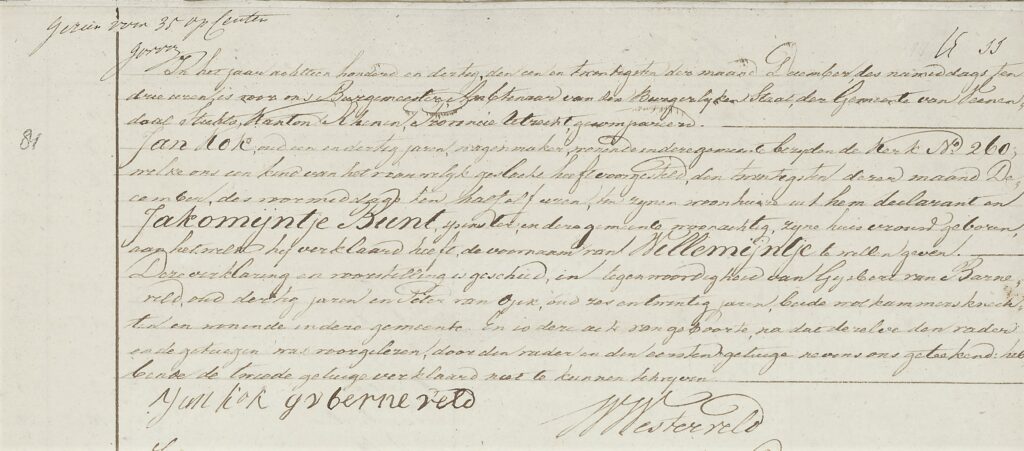 voor 35 op Centen
55
81
In het jaar achttien honderd en dertig, den een en twentegsten der maand December des namiddags ten
drie uren, is voor ons Burgemeester, Ambtenaar van den Burgerlyken Staat, der Gemeente van Veenen,
daal, Kanton Rhenen, Provincie Utrecht, gecompareerd.
Jan Kok oud een en dertig jaren, wagenmaker, wonende in dere gemeente byden de Kerk No 260,
welke ons een kind van het vrouwelyk geslacht heeft voorgesteld, den twentegsten derer maand De,
cember, des voormiddags ten half elf uren, in zynen woonhuize uit hem declarant en
Jakomijntje Bunt, spinster, in dere gemeente woonachtig, zyne huisvrouw geboren,
aan het welk hij verklaard heeft de voornaam van Willemijntje te willen geven.
Dere verklaring en voorstelling is geschied, in tegenwoordigheid van Gysbert van Barne,
veld, oud dertig jaren en Peter van Ojik, oud zes en twintig jaren, beide wolkammersknech,
ten en wonende in dere gemeente. En is dere acte van geboorte, na dat dezelve den vader
en de getuigen was voorgelezen, door den vader en den eersten getuige nevens ons geteekend: heb
bende de tweede getuige verklaard niet te kunnen schryven.
Jan kok gvberneveld
WWesterveld